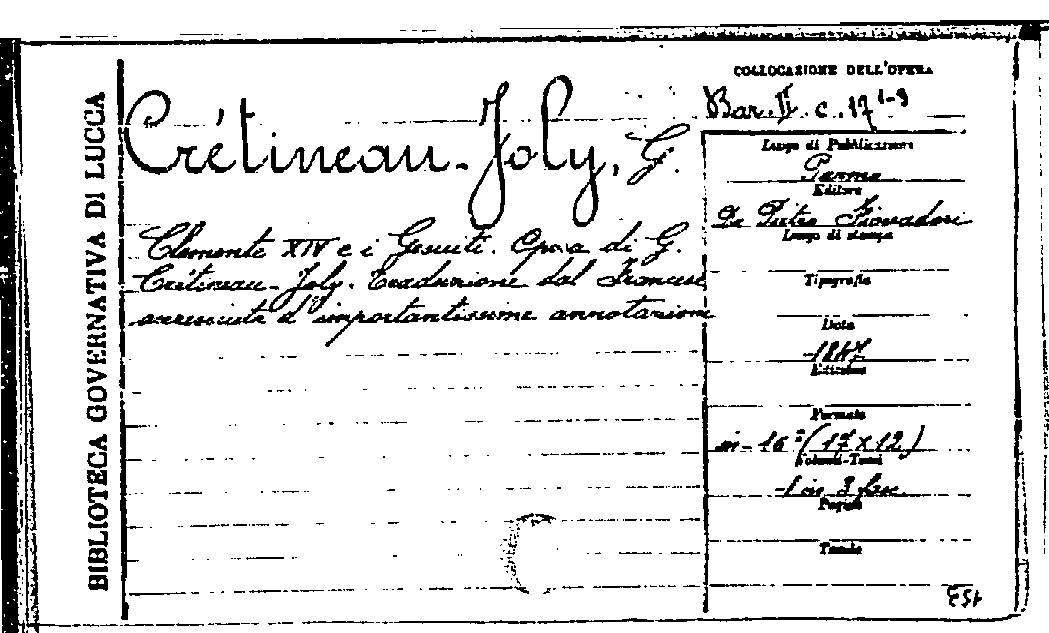 BIBLIOTECA GOVERNATIVA DI LUCCA
COLLOCAZIONE DELL'OPERA
Bar. II. c. 17 1-3
Crétineau-Joly, G.
Clemente XIV e i Gesuiti. Opera di G.
Crétineau-Joly. Traduzione dal Francese
accresciuta d'importantissime annotazioni
Luogo di Pubblicazione
Parma
Editore
Da Pietro Fiaccadori
Luogo di stampa
Tipografia
Data
1847
Edizione
Formato
in-16° (17 x 12)
Volumi-Tomi
1 in 3 fasc.
Pagine
Tavole